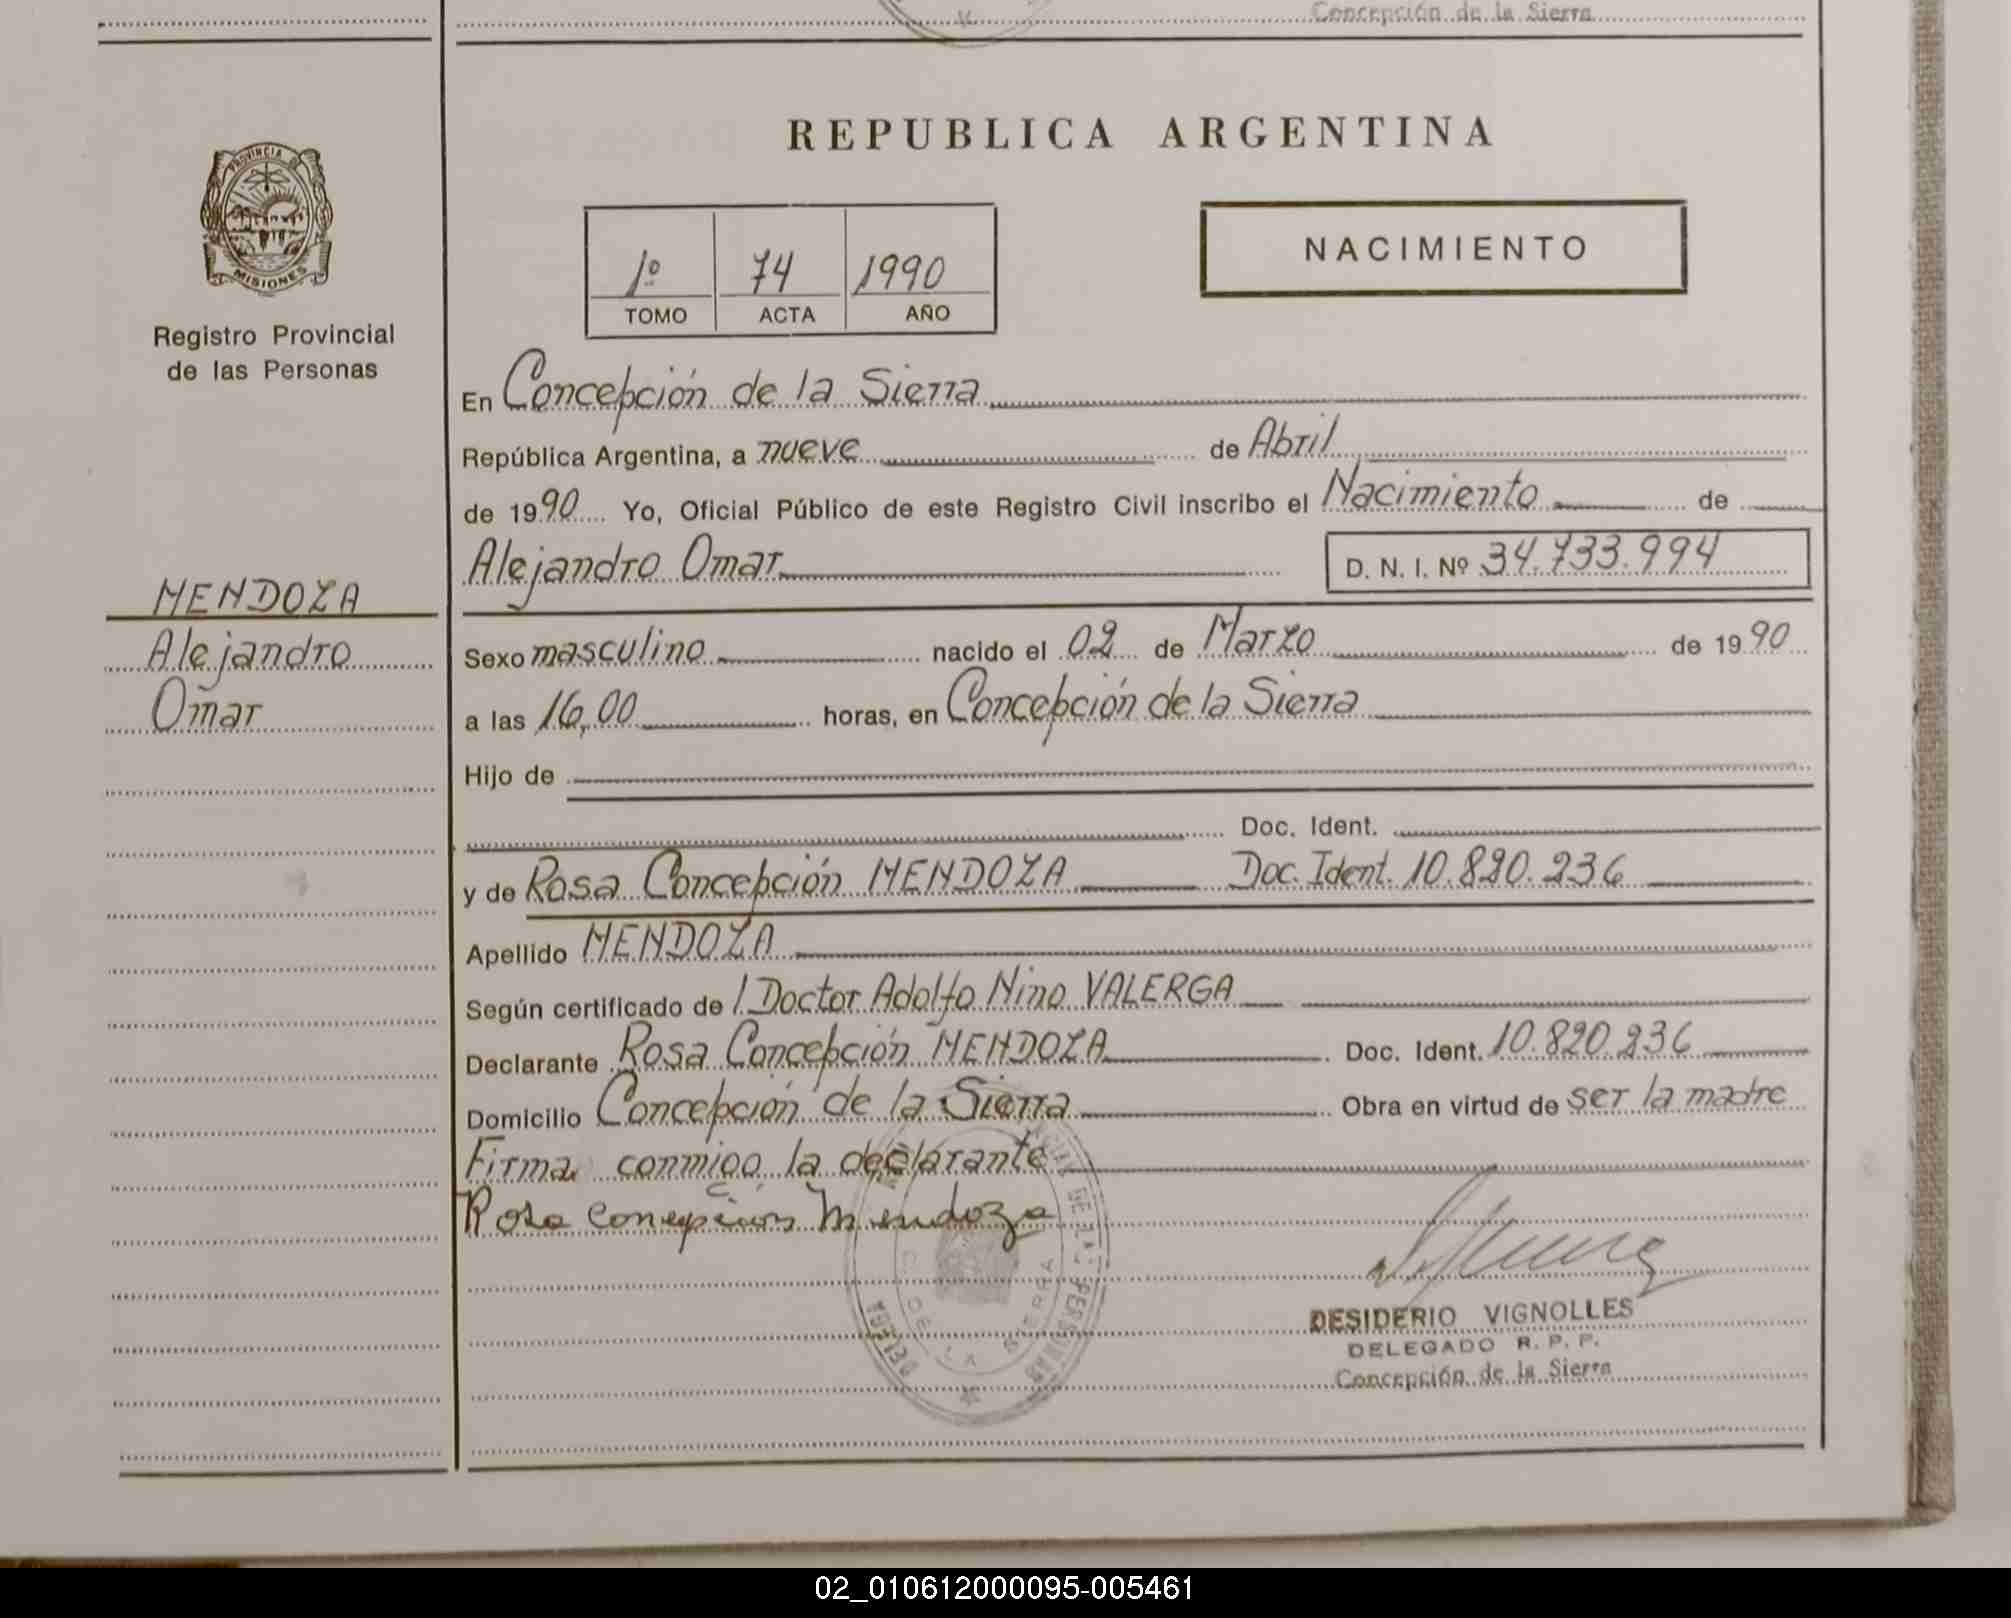 Concepción de la Sierra
REPUBLICA ARGENTINA
PROVINCIA DE
MISIONES
Registro Provincial
de las Personas
1º 74 1990
TOMO ACTA AÑO
NACIMIENTO
En Concepción de la Sierra
República Argentina, a nueve de Abril
de 1990 Yo, Oficial Público de este Registro Civil inscribo el Nacimiento de
Alejandro Omar D. N. I. Nº 34.733.994
MENDOZA
Alejandro
Omar
Sexo masculino nacido el 02 de Marzo de 1990
a las 16,00 horas, en Concepción de la Sierra
Hijo de
Doc. Ident.
y de Rosa Concepción MENDOZA Doc. Ident. 10.820.236
Apellido MENDOZA
Según certificado de l Doctor Adolfo Nino VALERGA
Declarante Rosa Concepción MENDOZA Doc. Ident. 10.820.236
Domicilio Concepción de la Sierra Obra en virtud de ser la madre
Firma conmigo la declarante
Rosa Concepción Mendoza
DE LAS PERSONAS
C. DE LA SIERRA
DESIDERIO VIGNOLLES
DELEGADO R. P. P.
Concepción de la Sierra
02_010612000095-005461